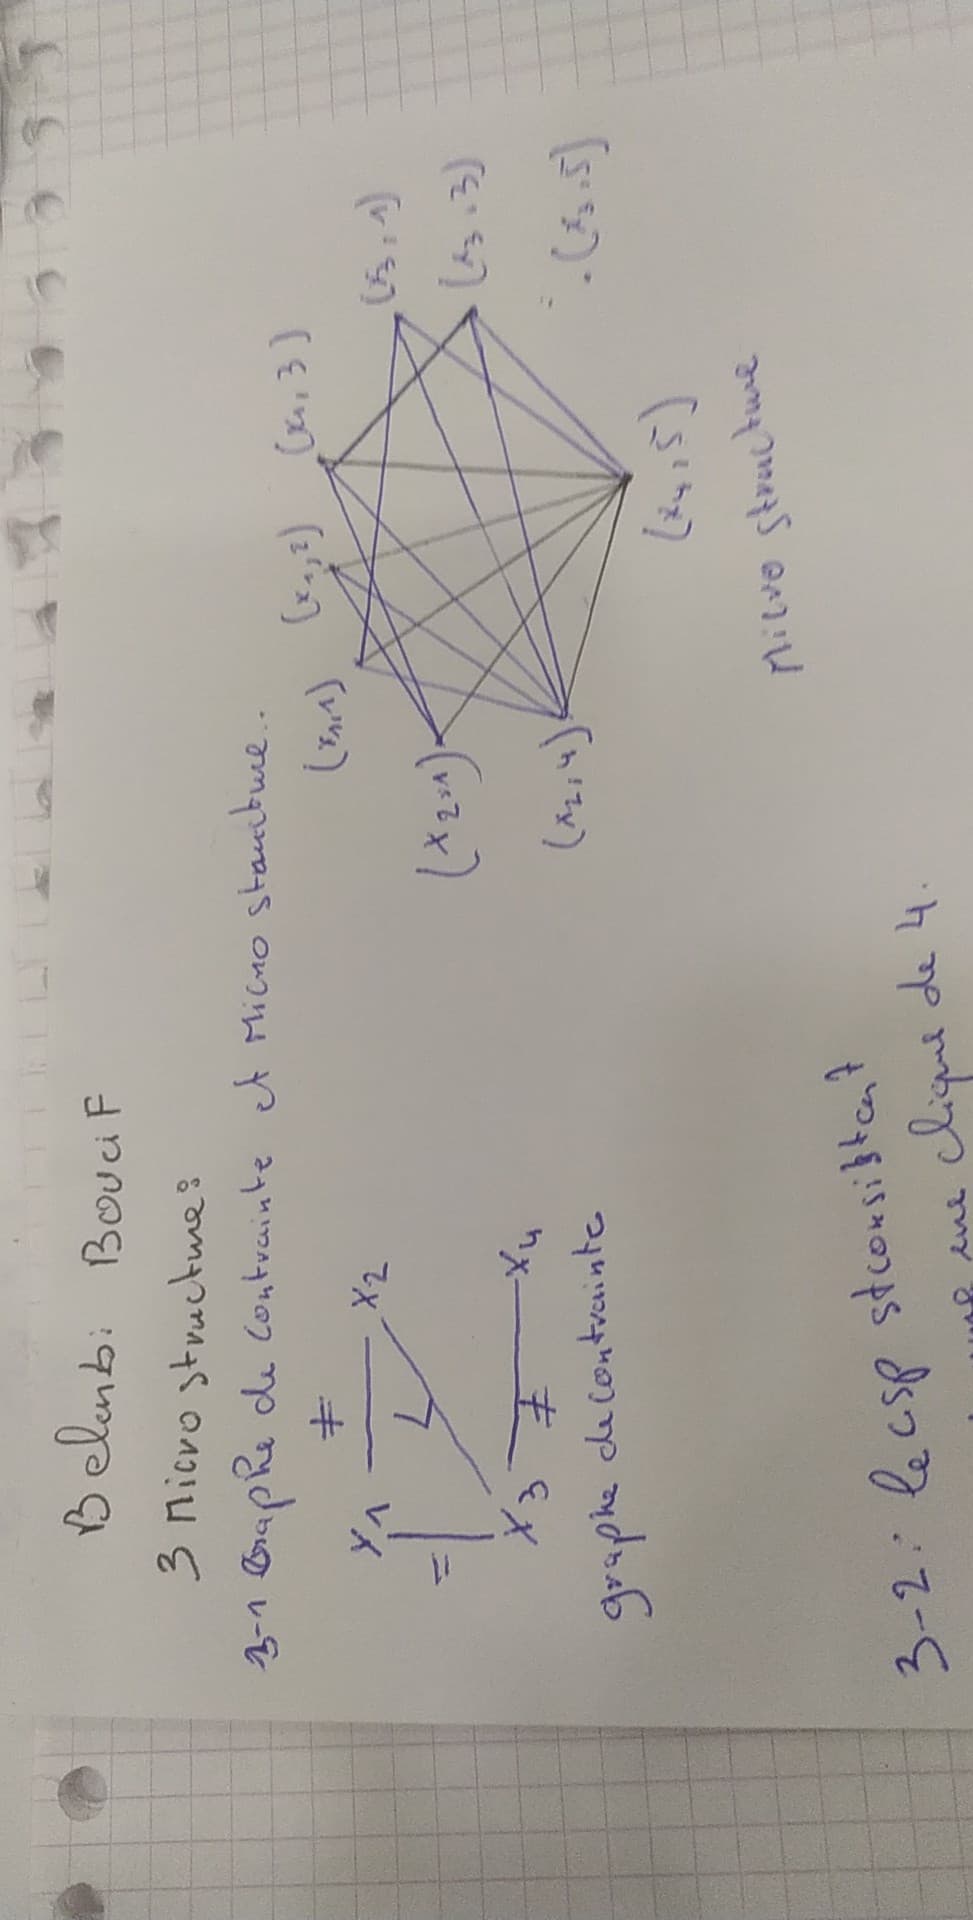 Belarbi BouciF
3 Micro structure:
3-1 Graphe de contrainte et Micro structure.
≠
x1 x2
= <
x3 ≠ x4
graphe de contrainte
(x1,1) (x1,2) (x1,3)
(x2,1) (x3,1)
(x3,3)
(x2,4) (x3,5)
(x4,5)
Micro structure
3-2: le csp st consistant
une clique de 4.